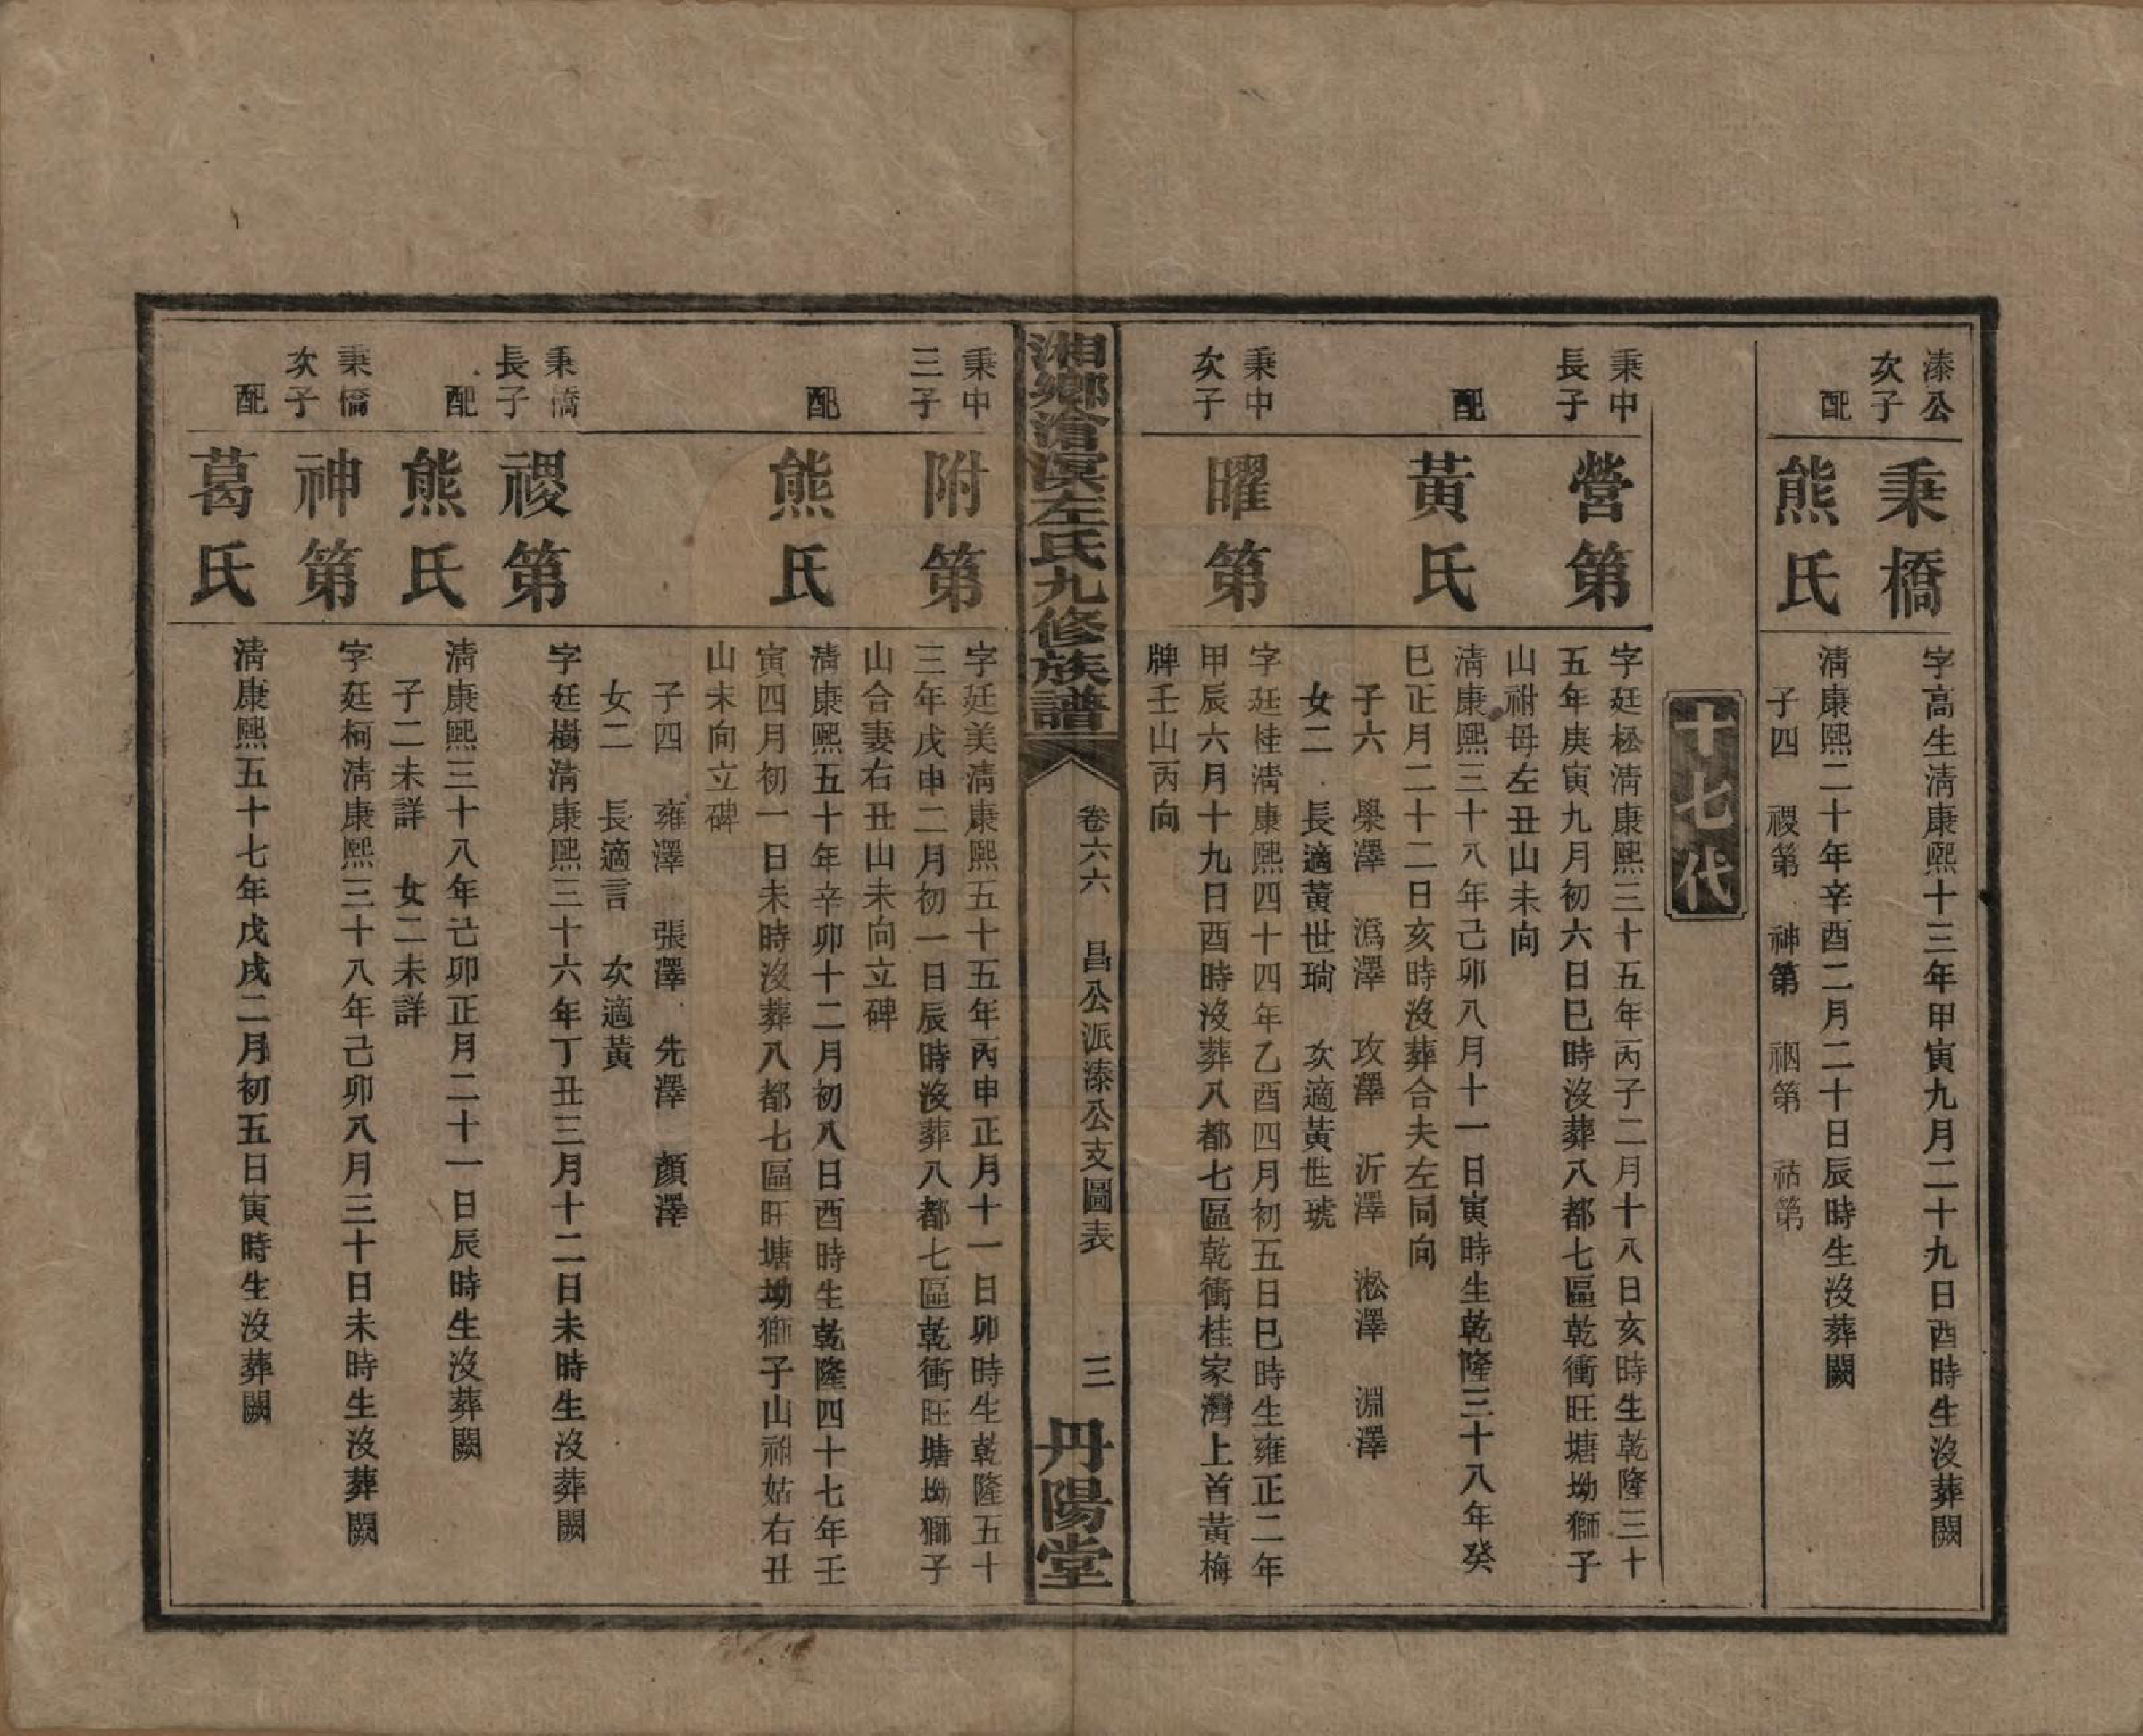 溱公
次子
秉橋
字高生清康熙十三年甲寅九月二十九日酉時生沒葬闕
配
熊氏
清康熙二十年辛酉二月二十日辰時生沒葬闕
子四 禝第 神第 祵第 祜第
十七代
秉中
長子
營第
字廷松清康熙三十五年丙子二月十八日亥時生乾隆三十
五年庚寅九月初六日巳時沒葬八都七區乾衝旺塘坳獅子
山祔母左丑山未向
配
黃氏
清康熙三十八年己卯八月十一日寅時生乾隆三十八年癸
巳正月二十二日亥時沒葬合夫左同向
子六 㶅澤 潙澤 攻澤 沂澤 淞澤 淵澤
女二 長適黃世珦 次適黃世琥
秉中
次子
曜第
字廷桂清康熙四十四年乙酉四月初五日巳時生雍正二年
甲辰六月十九日酉時沒葬八都七區乾衝桂家灣上首黃梅
牌壬山丙向
湘鄉滄溟左氏九修族譜
卷六六 昌公派溱公支圖表 三
丹陽堂
秉中
三子
附第
字廷美清康熙五十五年丙申正月十一日卯時生乾隆五十
三年戊申二月初一日辰時沒葬八都七區乾衝旺塘坳獅子
山合妻右丑山未向立碑
配
熊氏
清康熙五十年辛卯十二月初八日酉時生乾隆四十七年壬
寅四月初一日未時沒葬八都七區旺塘坳獅子山祔姑右丑
山未向立碑
子四 雍澤 張澤 先澤 顏澤
女二 長適言 次適黃
秉橋
長子
禝第
字廷樹清康熙三十六年丁丑三月十二日未時生沒葬闕
配
熊氏
清康熙三十八年己卯正月二十一日辰時生沒葬闕
子二未詳 女二未詳
秉橋
次子
神第
字廷柯清康熙三十八年己卯八月三十日未時生沒葬闕
配
葛氏
清康熙五十七年戊戌二月初五日寅時生沒葬闕